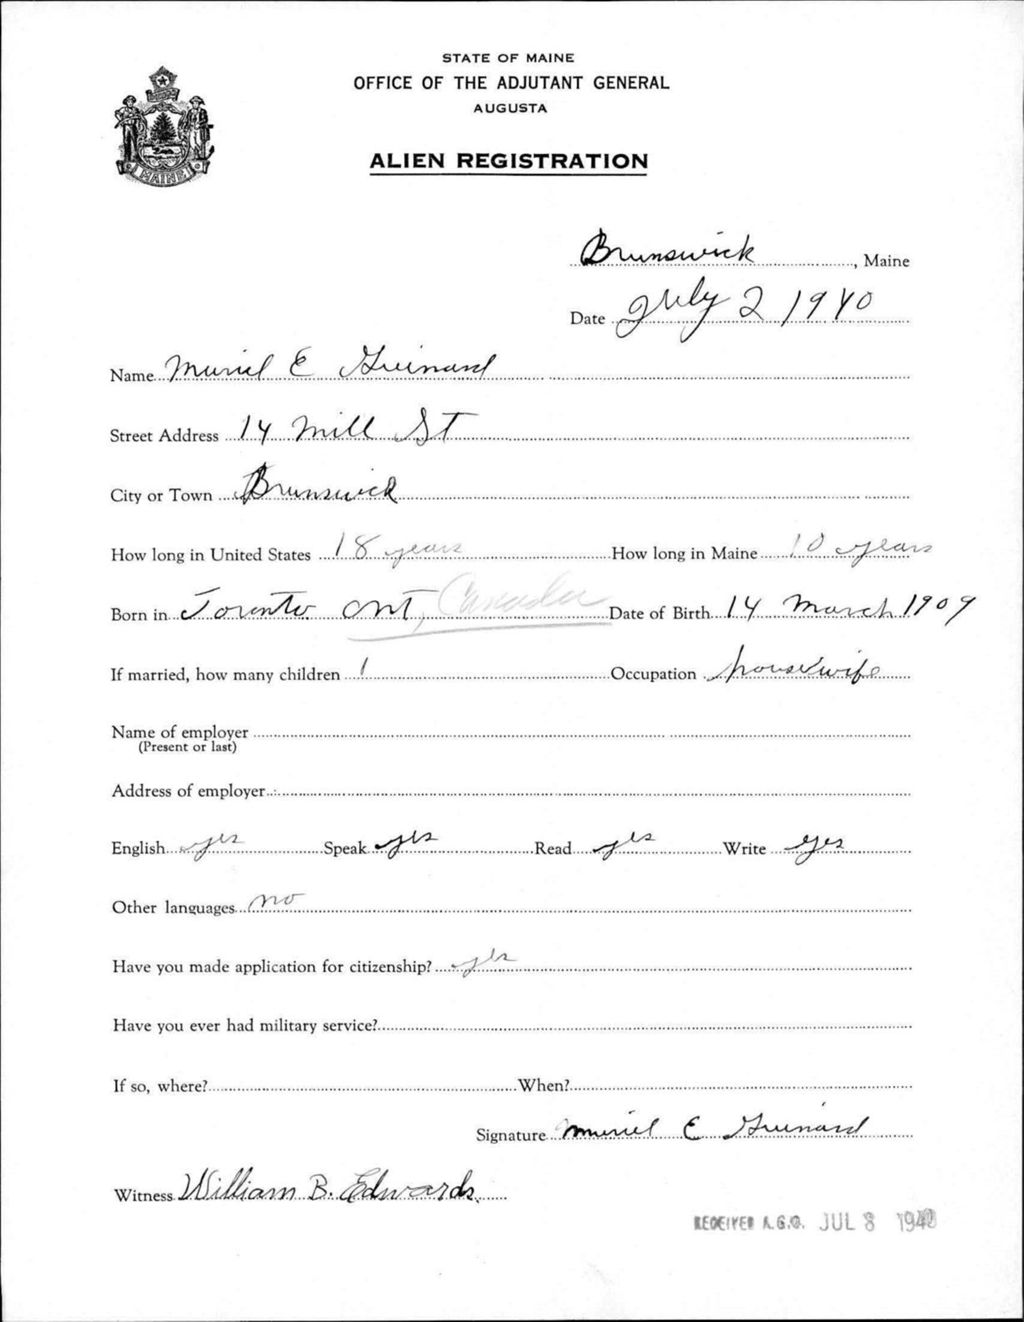 STATE OF MAINE
OFFICE OF THE ADJUTANT GENERAL
AUGUSTA
MAINE
ALIEN REGISTRATION
Brunswick, Maine
Date July 2 1940
Name Muriel E Guinard
Street Address 14 Mill St
City or Town Brunswick
How long in United States 18 years How long in Maine 10 years
Born in Toronto Ont, Canada Date of Birth 14 March 1909
If married, how many children 1 Occupation housewife
Name of employer
(Present or last)
Address of employer
English yes Speak yes Read yes Write yes
Other languages no
Have you made application for citizenship? yes
Have you ever had military service?
If so, where? When?
Signature Muriel E Guinard
Witness William B. Edwards
RECEIVED A.G.O. JUL 8 1940